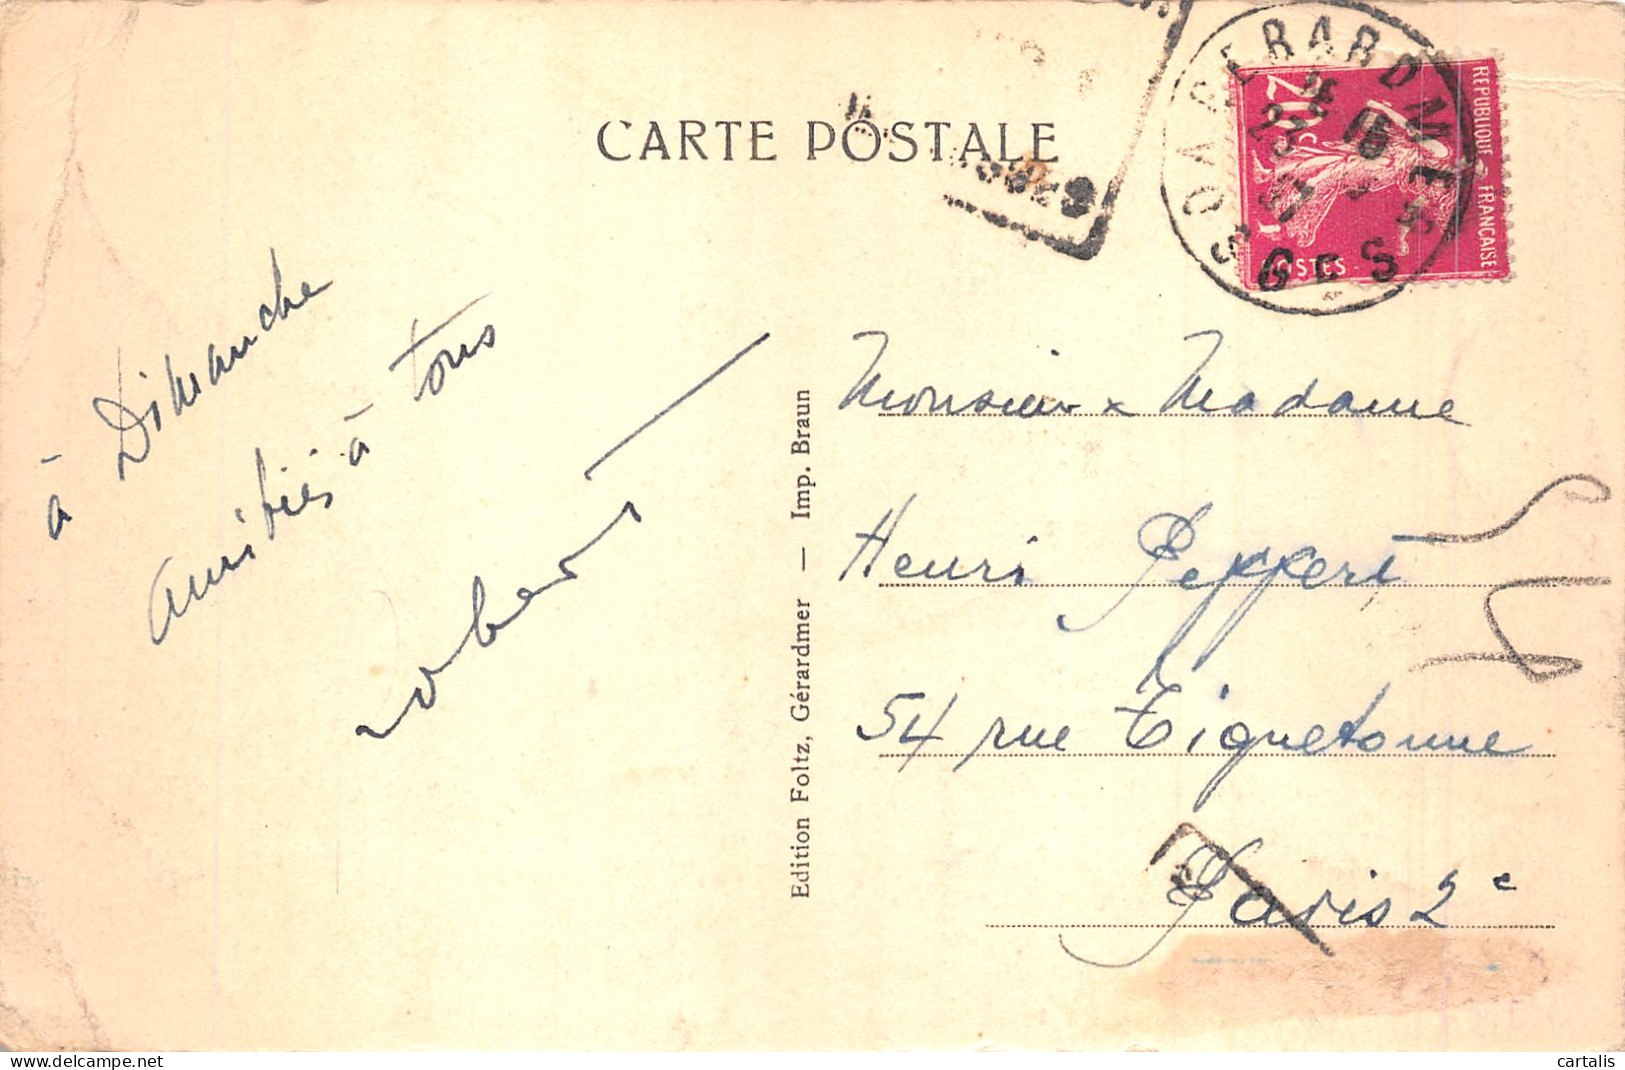 CARTE POSTALE
GERARDMER
VOSGES
REPUBLIQUE FRANÇAISE
20c
POSTES
à Dimanche
amitiés à tous
Robert
Edition Foltz, Gérardmer — Imp. Braun
Monsieur & Madame
Henri Peppert
54 rue Tiquetonne
Paris 2e
cartalis